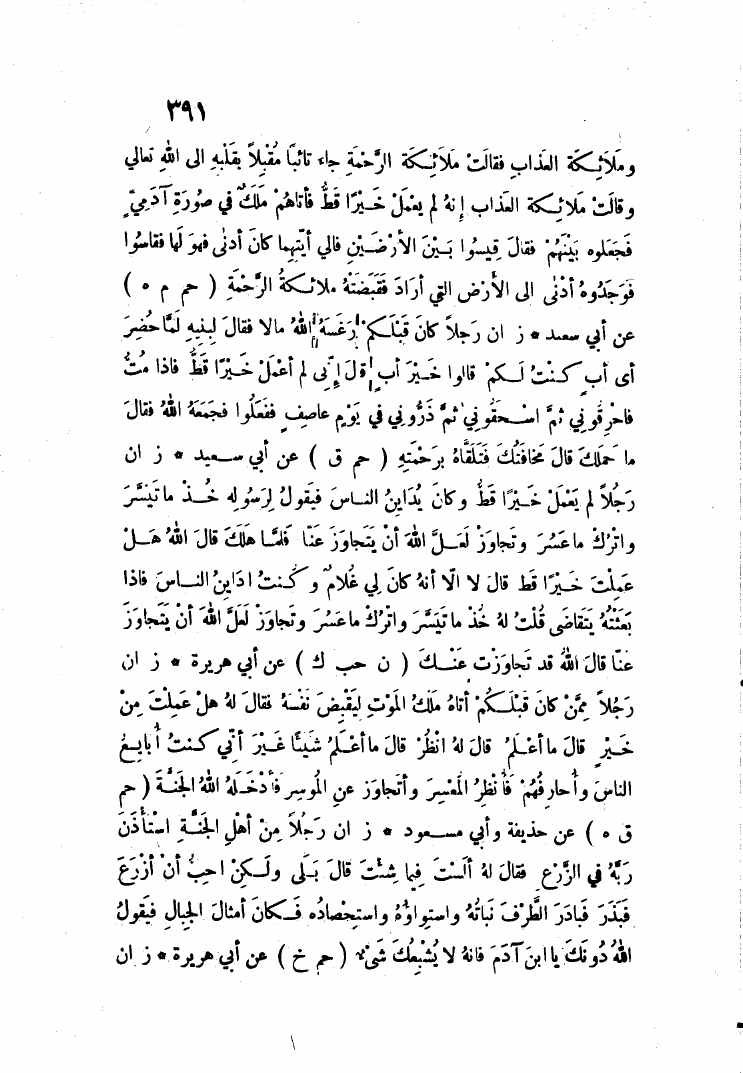 ٣٩١
وملائكة العذاب فقالت ملائكة الرَّحْمَةِ جاء تائبًا مُقْبِلاً بِقَلْبِهِ الى اللهِ تعالي
وقالَتْ ملائكة العذاب إنهُ لم يعْمَلْ خَيْرًا قَطُّ فأتاهُمْ مَلَكٌ في صُورَةِ آدَمِيٍّ
فَجَعلوه بَيْنَهُمْ فقالَ قِيسُوا بَيْنَ الأَرْضَيْنِ فالي أيَّتِهِما كانَ أدنَى فهوَ لَها فقاسُوا
فَوَجَدُوهُ أدْنَى الى الأَرْضِ التي أرَادَ فَقَبَضَتْهُ ملائكةُ الرَّحْمَةِ ( حم م ه )
عن أبي سعيد * ز ان رَجلاً كانَ قَبْلَكُمْ رَغَسَهُ اللهُ مالا فقالَ لِبَنِيهِ لَمَّا حُضِرَ
أى أبٍ كُنْتُ لَكُمْ قالوا خَيْرَ أبٍ قالَ إنّى لم أعْمَلْ خَيْرًا قَطُّ فاذا مُتُّ
فاحْرِقُوني ثمَّ اسْحَقُوني ثمَّ ذَرُّوني في يَوْمٍ عاصِفٍ ففَعلُوا فجمَعهُ اللهُ فقالَ
ما حَمَلكَ قالَ مَخافَتُكَ فَتَلَقَّاهُ بِرَحْمَتِهِ ( حم ق ) عن أبي سعيد * ز ان
رَجُلاً لم يَعْمَلْ خَيْرًا قَطُّ وكانَ يُدَايِنُ الناسَ فيَقولُ لِرَسُولِه خُذْ ما تَيَسَّرَ
واتْرُكْ ماعَسُرَ وتَجاوَزْ لَعَلَّ اللهَ أنْ يَتَجاوَزَ عنَّا فَلَمَّا هَلَكَ قالَ اللهُ هَلْ
عَمِلْتَ خَيْرًا قط قالَ لا الّا أنهُ كانَ لِي غُلامٌ وكُنتُ ادَايِنُ الناسَ فاذا
بَعَثْتُهُ يَتَقاضَى قُلْتُ لهُ خُذْ ما تَيَسَّرَ واتْرُكْ ماعَسُرَ وتَجاوَزْ لَعَلَّ اللهَ أنْ يَتَجاوَزَ
عَنَّا قالَ اللهُ قد تَجاوَزْت عَنْكَ ( ن حب ك ) عن أبي هريرة * ز ان
رَجُلاً مِمَّنْ كانَ قَبْلَكُمْ أتاهُ مَلَكُ المَوْتِ لِيَقْبِضَ نَفْسَهُ فقالَ لهُ هلْ عَمِلْتَ مِنْ
خَيْرٍ قالَ ما أعْلَمُ قالَ لهُ انْظُرْ قالَ ما أعْلَمُ شَيئًا غَيْرَ أنّي كنتُ أُبايِعُ
الناسَ وأُحارِفُهُمْ فَأُنْظِرُ المُعْسِرَ وأتَجاوَز عنِ المُوسِرِ فأدْخَلَهُ اللهُ الجَنَّةَ ( حم
ق ه ) عن حذيفة وأبي مسعود * ز ان رَجُلاً مِنْ أهلِ الجَنَّةِ اسْتأذَنَ
رَبَّهُ في الزَّرْعِ فقالَ لهُ ألَسْتَ فِيما شِئْتَ قالَ بَلَى ولَكِنْ احِبُّ أنْ أزْرَعَ
فَبَذَرَ فَبادَرَ الطَّرْفَ نَباتُهُ واستِواؤُهُ واستِحْصادُه فَكانَ أمْثالَ الجِبالِ فيَقولُ
اللهُ دُونَكَ يا ابنَ آدَمَ فانهُ لا يُشْبِعُكَ شَىْءٌ ( حم خ ) عن أبي هريرة * ز ان